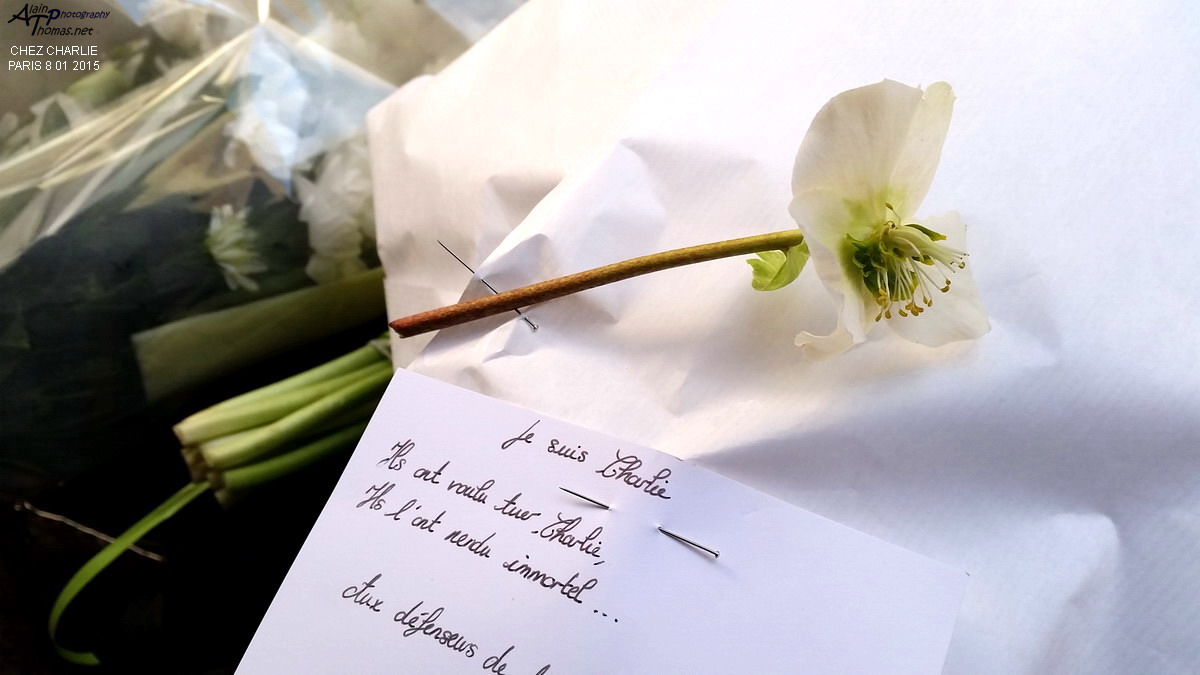 Alain Photography
Thomas.net
CHEZ CHARLIE
PARIS 8 01 2015
Je suis Charlie
Ils ont voulu tuer Charlie,
Ils l'ont rendu immortel...
Aux défenseurs de